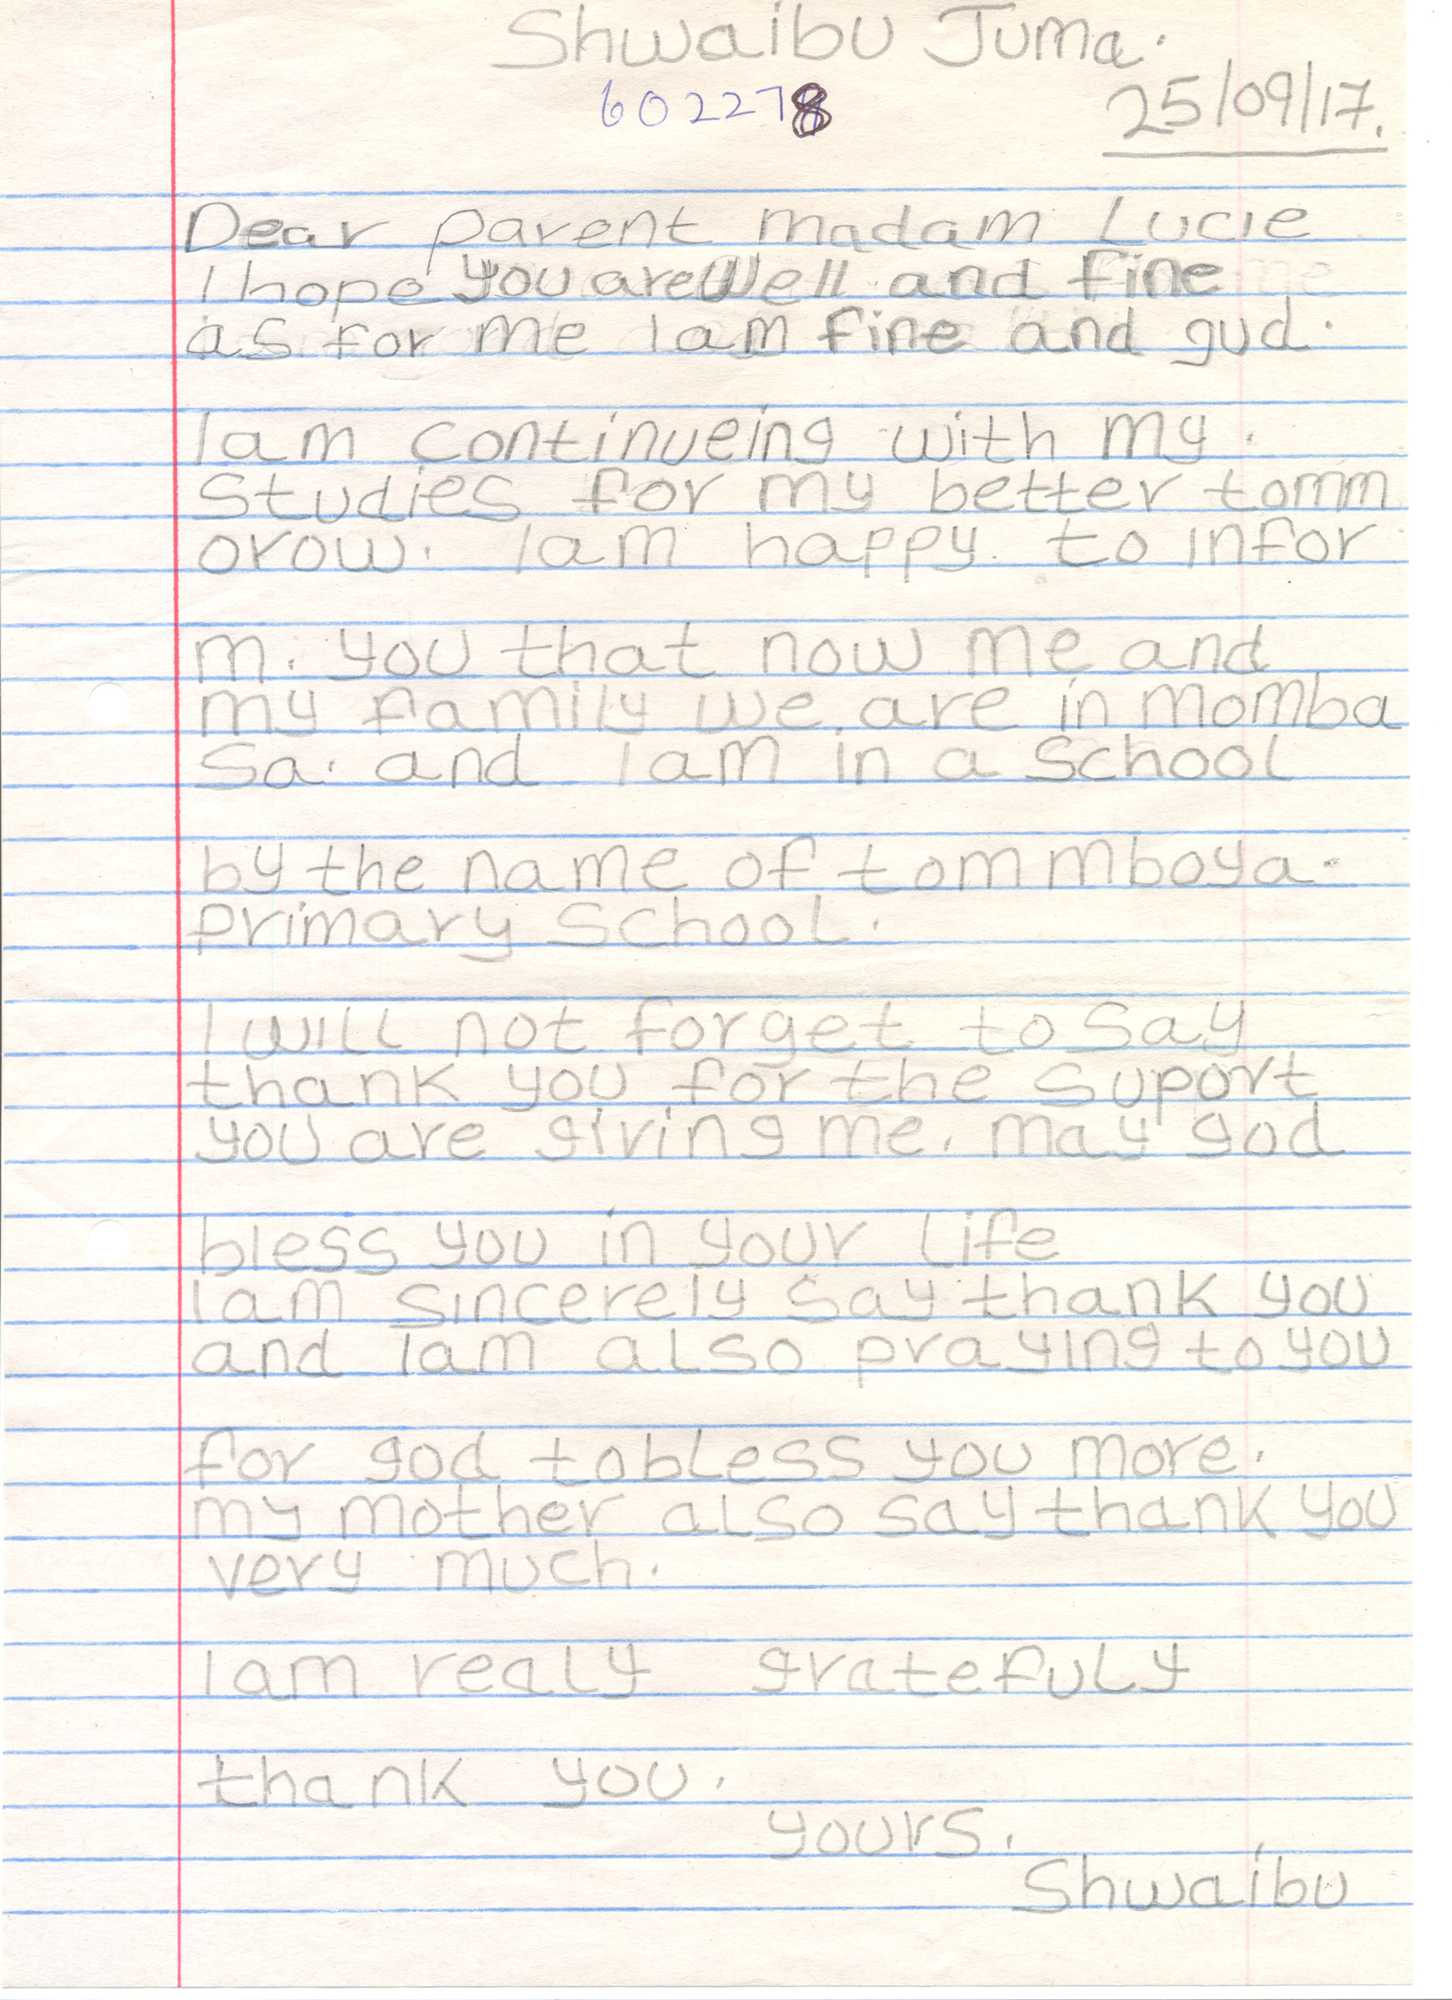 Shwaibu Juma.
602278
25/09/17.
Dear parent madam Lucie
I hope you are well and fine
as for me Iam fine and gud.
Iam continueing with my.
Studies for my better tomm
orow. Iam happy to infor
m. you that now me and
my family we are in momba
Sa. and Iam in a School
by the name of tom mboya.
primary School.
I will not forget to Say
thank you for the Suport
you are giving me. may god
bless you in your life
Iam sincerely say thank you
and Iam also praying to you
for god to bless you more.
my mother also say thank you
very much.
Iam realy gratefuly
thank you.
yours.
Shwaibu